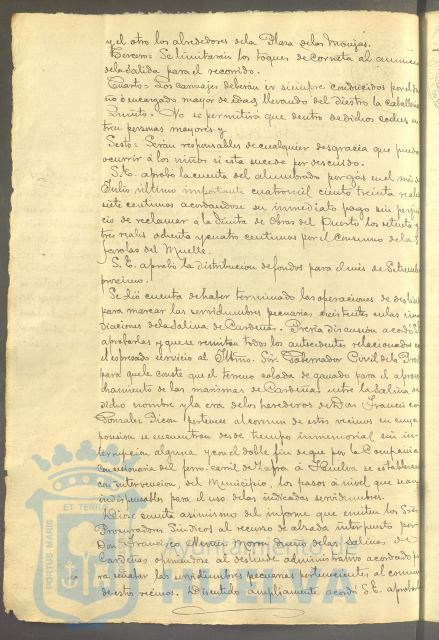 y el otro los alrededores dela Plaza delas Monjas.
Tercero= Se limitarán los toques de corneta al anuncio
dela salida para el recorrido.
Cuarto= Los carruajes deberán ir siempre conducidos por el
ño ó encargado mayor de edad, llevando del diestro la caballeria
Quinto. No se permitirá que dentro de dichos coches en
tren personas mayores y
Sesto= Serán responsables de cualquier desgracia que pueda
ocurrir á los niños si esta sucede por descuido.
S.E. aprobó la cuenta del alumbrado por gas en el mes de
Julio último importante cuatromil ciento treinta reales
siete centimos acordandose su inmediato pago sin perjui
cio de reclamar á la Junta de Obras del Puerto los setenta y
tres reales ochenta y cuatro centimos por el consumo de las
farolas del Muelle.
S.E. aprobó la distribucion de fondos para el mes de Setiembre
procsimo.
Se dió cuenta de haber terminado las operaciones de deslinde
para marcar las servidumbres pecuarias existentes en las inme
diaciones dela Salina de Cardeñas. Previa discusion acordó S.E.
aprobarlas y que se remitan todos los antecedentes relacionados con
el espresado servicio al Iltmo. Sor. Gobernador Civil dela Prov
para que le conste que el terreno salada de ganado para el aprove
chamiento de las marismas de Cardeñas, entre la Salina de
dicho nombre y la era de los herederos de Don Francisco
Gonzalez Picon pertenece al comun de estos vecinos en cuya
posesion se encuentran desde tiempo inmemorial sin in
terrupcion alguna y con el doble fin de que por la Compañia
Concesionaria del ferro-carril de Zafra á Huelva se establezcan
con intervencion, del Municipio, los pasos á nivel que sean
indispensables para el uso de las indicadas servidumbres.
Dióse cuenta asimismo del informe que emiten los Sres.
Procuradores Sindicos al recurso de alzada interpuesto por
Don Francisco dueño de las Salinas de
Cardeñas oponiendose al deslinde administrativo acordado pa
ra señalar las servidumbres pecuarias pertenecientes al comun
de estos vecinos. Discutido ampliamente acordó S.E. aprobar
PORTUS MARIS
ET TERRAE
Ayuntamiento de
HUELVA